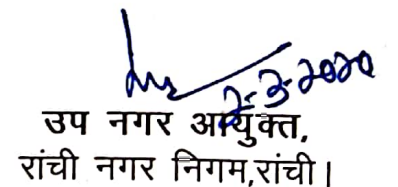 2-3-2020
उप नगर आयुक्त,
रांची नगर निगम,रांची।